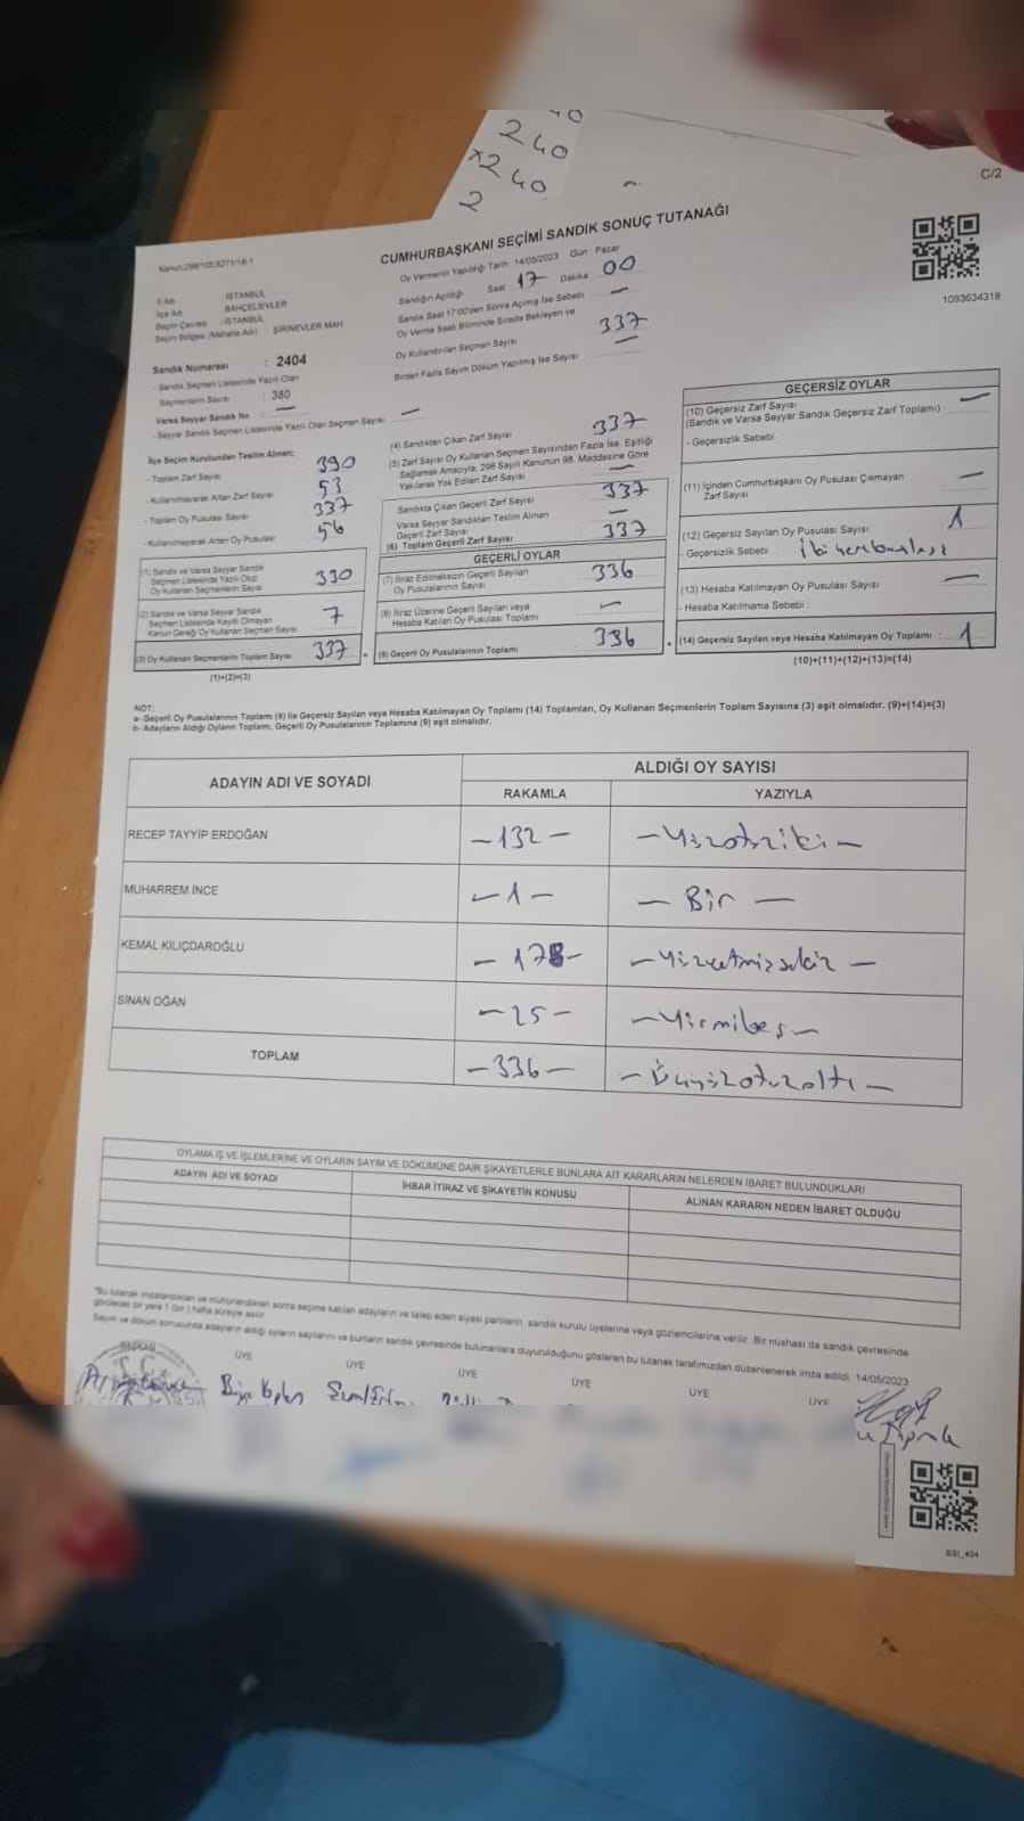 40
240
x240
2
C/2
CUMHURBAŞKANI SEÇİMİ SANDIK SONUÇ TUTANAĞI
Oy Vermenin Yapıldığı Tarih: 14/05/2023 Gün: Pazar
Sandığın Açıldığı Saat 17 Dakika 00
Sandık Saat 17:00'den Sonra Açılmış İse Sebebi —
Oy Verme Saati Bitiminde Sırada Bekleyen ve
Oy Kullandırılan Seçmen Sayısı 337
Birden Fazla Sayım Döküm Yapılmış İse Sayısı —
1093634318
İl Adı : İSTANBUL
İlçe Adı : BAHÇELİEVLER
Seçim Çevresi : İSTANBUL
Seçim Bölgesi (Mahalle Adı) : ŞİRİNEVLER MAH
Sandık Numarası : 2404
- Sandık Seçmen Listesinde Yazılı Olan
Seçmenlerin Sayısı : 380
Varsa Seyyar Sandık No : —
- Seyyar Sandık Seçmen Listesinde Yazılı Olan Seçmen Sayısı : —
İlçe Seçim Kurulundan Teslim Alınan;
- Toplam Zarf Sayısı 390
- Kullanılmayarak Artan Zarf Sayısı 53
- Toplam Oy Pusulası Sayısı 337
- Kullanılmayarak Artan Oy Pusulası 56
(1) Sandık ve Varsa Seyyar Sandık
Seçmen Listesinde Yazılı Olup
Oy Kullanan Seçmenlerin Sayısı 330
(2) Sandık ve Varsa Seyyar Sandık
Seçmen Listesinde Kayıtlı Olmayan
Kanun Gereği Oy Kullanan Seçmen Sayısı 7
(3) Oy Kullanan Seçmenlerin Toplam Sayısı 337
(1)+(2)=(3)
(4) Sandıktan Çıkan Zarf Sayısı 337
(5) Zarf Sayısı Oy Kullanan Seçmen Sayısından Fazla İse, Eşitliği
Sağlamak Amacıyla, 298 Sayılı Kanunun 98. Maddesine Göre
Yakılarak Yok Edilen Zarf Sayısı —
Sandıkta Çıkan Geçerli Zarf Sayısı 337
Varsa Seyyar Sandıktan Teslim Alınan
Geçerli Zarf Sayısı —
(6) Toplam Geçerli Zarf Sayısı 337
GEÇERLİ OYLAR
(7) İtiraz Edilmeksizin Geçerli Sayılan
Oy Pusulalarının Sayısı 336
(8) İtiraz Üzerine Geçerli Sayılan veya
Hesaba Katılan Oy Pusulası Toplamı —
(9) Geçerli Oy Pusulalarının Toplamı 336
GEÇERSİZ OYLAR
(10) Geçersiz Zarf Sayısı —
(Sandık ve Varsa Seyyar Sandık Geçersiz Zarf Toplamı)
- Geçersizlik Sebebi
(11) İçinden Cumhurbaşkanı Oy Pusulası Çıkmayan
Zarf Sayısı —
(12) Geçersiz Sayılan Oy Pusulası Sayısı 1
- Geçersizlik Sebebi
(13) Hesaba Katılmayan Oy Pusulası Sayısı —
- Hesaba Katılmama Sebebi :
(14) Geçersiz Sayılan veya Hesaba Katılmayan Oy Toplamı : 1
(10)+(11)+(12)+(13)=(14)
NOT:
a- Geçerli Oy Pusulalarının Toplam (9) ile Geçersiz Sayılan veya Hesaba Katılmayan Oy Toplamı (14) Toplamları, Oy Kullanan Seçmenlerin Toplam Sayısına (3) eşit olmalıdır. (9)+(14)=(3)
b- Adayların Aldığı Oyların Toplamı, Geçerli Oy Pusulalarının Toplamına (9) eşit olmalıdır.
ADAYIN ADI VE SOYADI ALDIĞI OY SAYISI
RAKAMLA YAZIYLA
RECEP TAYYİP ERDOĞAN —132— —Yüzotuziki—
MUHARREM İNCE —1— —Bir—
KEMAL KILIÇDAROĞLU —178— —Yüzyetmişsekiz—
SİNAN OĞAN —25— —Yirmibeş—
TOPLAM —336— —Üçyüzotuzaltı—
OYLAMA İŞ VE İŞLEMLERİNE VE OYLARIN SAYIM VE DÖKÜMÜNE DAİR ŞİKAYETLERLE BUNLARA AİT KARARLARIN NELERDEN İBARET BULUNDUKLARI
ADAYIN ADI VE SOYADI İHBAR İTİRAZ VE ŞİKAYETİN KONUSU ALINAN KARARIN NEDEN İBARET OLDUĞU
*Bu tutanak imzalandıktan ve mühürlendikten sonra seçime katılan adayların ve talep eden siyasi partilerin, sandık kurulu üyelerine veya gözlemcilerine verilir. Bir nüshası da sandık çevresinde
görülecek bir yere 1 (bir) hafta süreyle asılır.
Sayım ve döküm sonucunda adayların aldığı oyların sayılarını ve bunların sandık çevresinde bulunanlara duyurulduğunu gösteren bu tutanak tarafımızdan düzenlenerek imza edildi. 14/05/2023
BAŞKAN ÜYE ÜYE ÜYE ÜYE ÜYE ÜYE